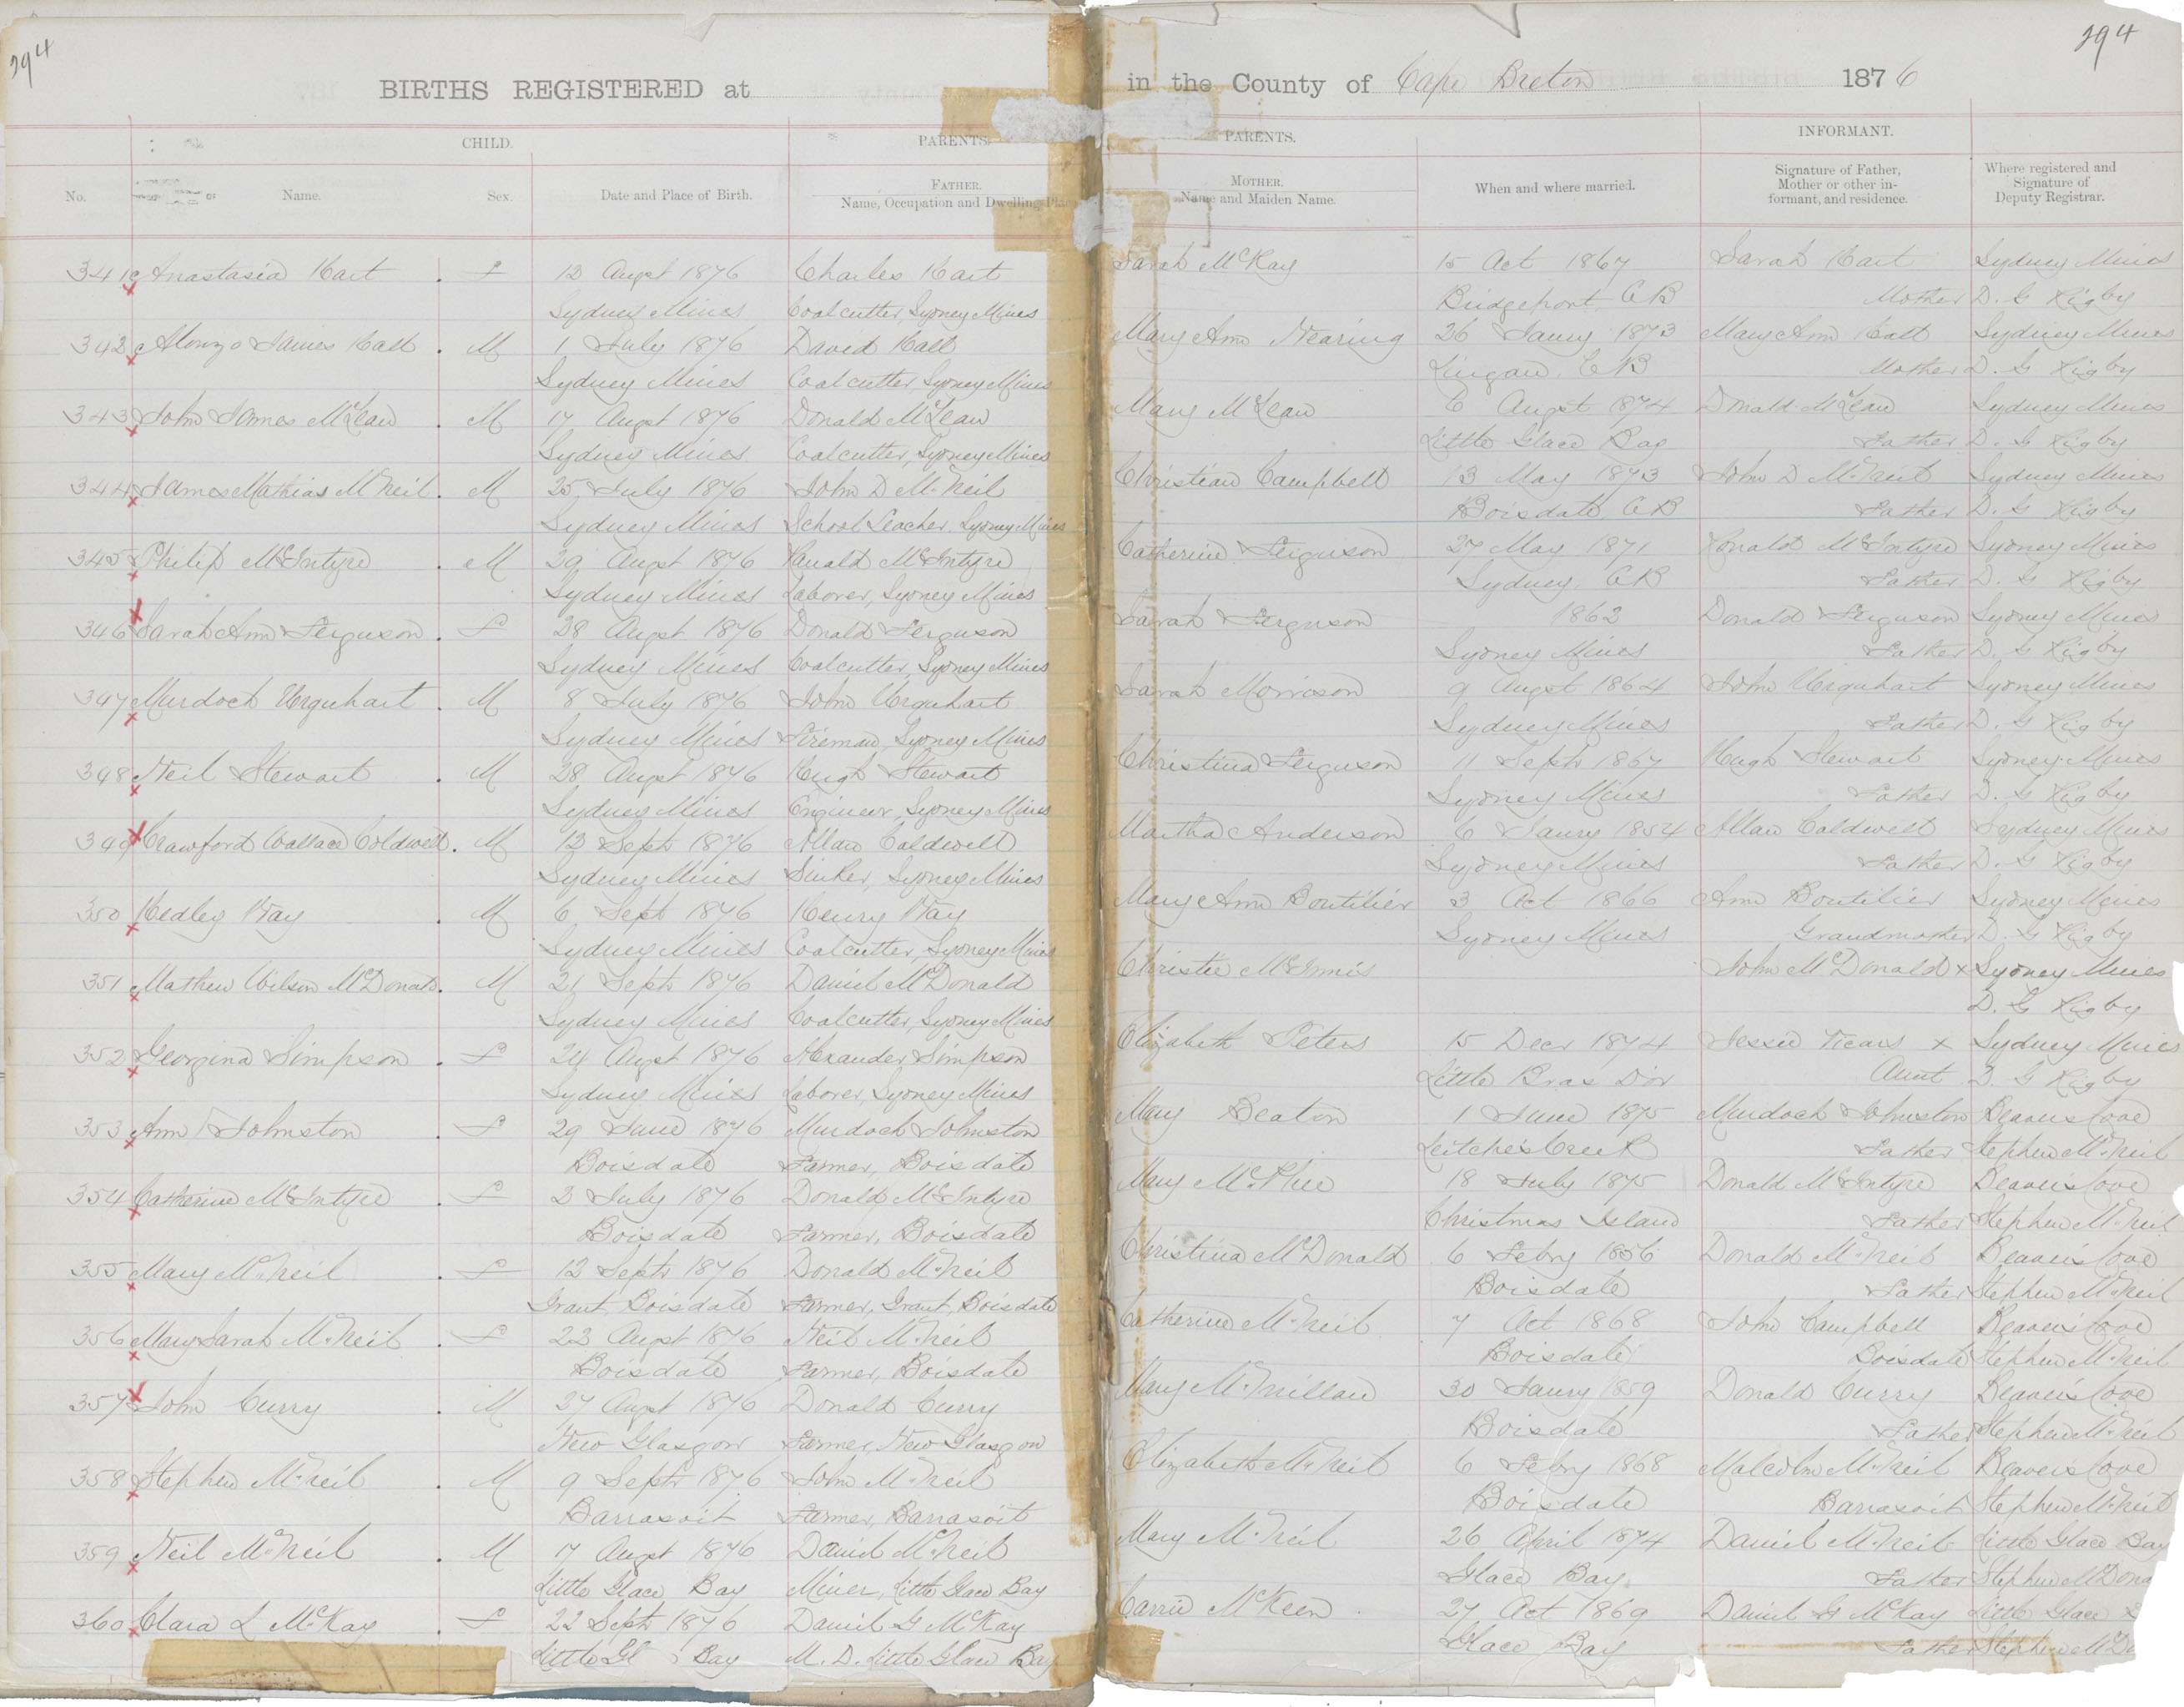 294
294
BIRTHS REGISTERED at in the County of Cape Breton 1876
CHILD. PARENTS. PARENTS. INFORMANT.
No. or Name. Sex. Date and Place of Birth. FATHER. Name, Occupation and Dwelling Place MOTHER. Name and Maiden Name. When and where married. Signature of Father, Mother or other informant, and residence. Where registered and Signature of Deputy Registrar.
341 Anastasia Hart . F 12 Augst 1876 Charles Hart Sarah McKay 15 Oct 1867 Sarah Hart Sydney Mines
Sydney Mines Coalcutter, Sydney Mines Bridgeport CB Mother D. G Rigby
342 Alonzo James Hall . M 1 July 1876 David Hall Mary Ann Nearing 26 Jany 1873 Mary Ann Hall Sydney Mines
Sydney Mines Coalcutter, Sydney Mines Lingan. CB Mother D. G Rigby
343 John James McLean . M 17 Augst 1876 Donald McLean Mary McLean 6 Augst 1874 Donald McLean Sydney Mines
Sydney Mines Coalcutter, Sydney Mines Little Glace Bay Father D. G Rigby
344 James Mathias McNeil . M 25 July 1876 John D McNeil Christian Campbell 13 May 1873 John D McNeil Sydney Mines
Sydney Mines School Teacher. Sydney Mines Boisdale CB Father D. G Rigby
345 Philip McIntyre . M 29 Augst 1876 Ranald McIntyre Catherine Ferguson 27 May 1871 Ronald McIntyre Sydney Mines
Sydney Mines Laborer, Sydney Mines Sydney. CB Father D. G Rigby
346 Sarah Ann Ferguson . F 28 Augst 1876 Donald Ferguson Sarah Ferguson 1862 Donald Ferguson Sydney Mines
Sydney Mines Coalcutter, Sydney Mines Sydney Mines Father D. G Rigby
347 Murdoch Urquhart . M 8 July 1876 John Urquhart Sarah Morrison 9 Augst 1864 John Urquhart Sydney Mines
Sydney Mines Fireman, Sydney Mines Sydney Mines Father D. G Rigby
348 Neil Stewart . M 28 Augst 1876 Hugh Stewart Christina Ferguson 11 Sept 1867 Hugh Stewart Sydney Mines
Sydney Mines Engineer, Sydney Mines Sydney Mines Father D. G Rigby
349 Crawford Wallace Coldwell . M 12 Sept 1876 Allan Caldwell Martha Anderson 6 Jany 1854 Allan Caldwell Sydney Mines
Sydney Mines Sinker, Sydney Mines Sydney Mines Father D. G Rigby
350 Hedley Way . M 6 Sept 1876 Henry Way Mary Ann Boutilier 3 Oct 1866 Ann Boutilier Sydney Mines
Sydney Mines Coalcutter, Sydney Mines Sydney Mines Grandmother D. G Rigby
351 Mathew Wilson McDonald . M 21 Sept 1876 Daniel McDonald Christie McInnis John McDonald x Sydney Mines
Sydney Mines Coalcutter, Sydney Mines D. G Rigby
352 Georgina Simpson . F 24 Augst 1876 Alexander Simpson Elizabeth Peters 15 Decr 1874 Jessie Vicars x Sydney Mines
Sydney Mines Laborer, Sydney Mines Little Bras Dor Aunt D. G Rigby
353 Ann Johnston . F 29 June 1876 Murdoch Johnston Mary Beaton 1 June 1875 Murdoch Johnston Beaver's Cove
Boisdale Farmer, Boisdale Leitches Creek Father Stephen McNeil
354 Catherine McIntyre . F 3 July 1876 Donald McIntyre Mary McPhee 18 July 1875 Donald McIntyre Beaver's Cove
Boisdale Farmer, Boisdale Christmas Island Father Stephen McNeil
355 Mary McNeil . F 12 Sept 1876 Donald McNeil Christina McDonald 6 Feby 1856 Donald McNeil Beaver's Cove
Grant Boisdale Farmer, Grant, Boisdale Boisdale Father Stephen McNeil
356 Mary Sarah McNeil . F 22 Augst 1876 Neil McNeil Catherine McNeil 7 Oct 1868 John Campbell Beaver's Cove
Boisdale Farmer, Boisdale Boisdale Boisdale Stephen McNeil
357 John Curry . M 27 Augst 1876 Donald Curry Mary McMillan 30 Jany 1859 Donald Curry Beaver's Cove
New Glasgow Farmer, New Glasgow Boisdale Father Stephen McNeil
358 Stephen McNeil . M 9 Sept 1876 John McNeil Elizabeth McNeil 6 Feby 1868 Malcolm McNeil Beaver's Cove
Barrasoit Farmer, Barrasoit Boisdale Barrasoit Stephen McNeil
359 Neil McNeil . M 17 Augst 1876 Daniel McNeil Mary McNeil 26 April 1874 Daniel McNeil Little Glace Bay
Little Glace Bay Miner, Little Glace Bay Glace Bay. Father Stephen McDona
360 Clara L McKay . F 22 Sept 1876 Daniel G McKay Carrie McKeen 27 Oct 1869 Daniel G McKay Little Glace
Little Gl Bay M. D. Little Glace Bay Glace Bay Father Stephen McDo